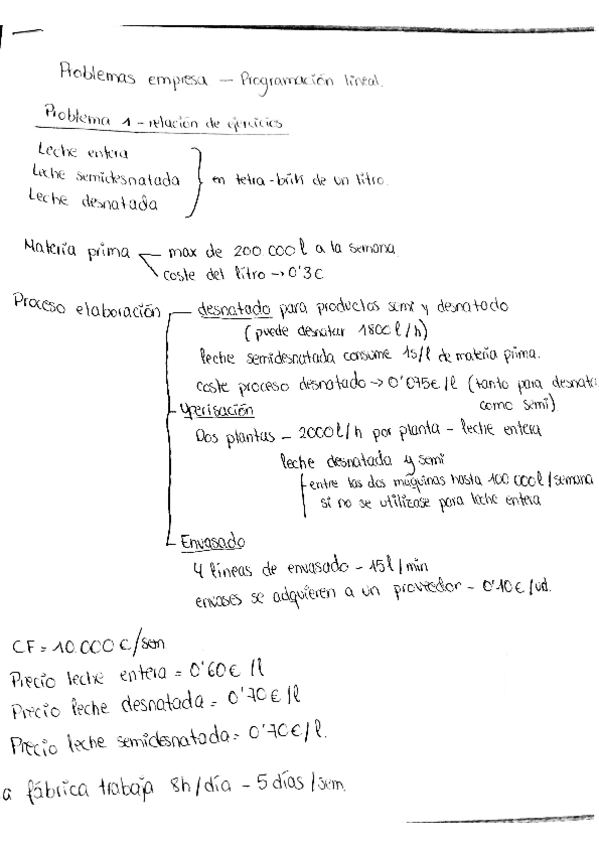 Problemas empresa — Programación lineal.
Problema 1 - relación de ejercicios
Leche entera
Leche semidesnatada
Leche desnatada
en tetra-briks de un litro.
Materia prima
max de 200.000 l a la semana
coste del litro → 0'3€
Proceso elaboración
desnatado para productos semi y desnatado
(puede desnatar 1800 l/h)
leche semidesnatada consume 1s/l de materia prima.
coste proceso desnatado → 0'075€/l (tanto para desnat
como semi)
Yperisación
Dos plantas - 2000 l/h por planta - leche entera
leche desnatada y semi
entre las dos máquinas hasta 100.000 l/semana
si no se utilizase para leche entera
Envasado
4 líneas de envasado - 15 l/min
envases se adquieren a un proveedor - 0'10€/ud.
CF = 10.000 €/sem
Precio leche entera = 0'60€/l
Precio leche desnatada = 0'70€/l
Precio leche semidesnatada = 0'70€/l.
a fábrica trabaja 8h/día - 5 días/sem.